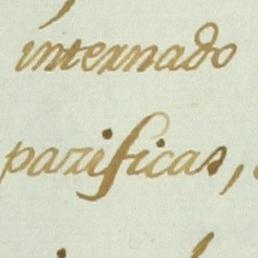 internado
pazificas,